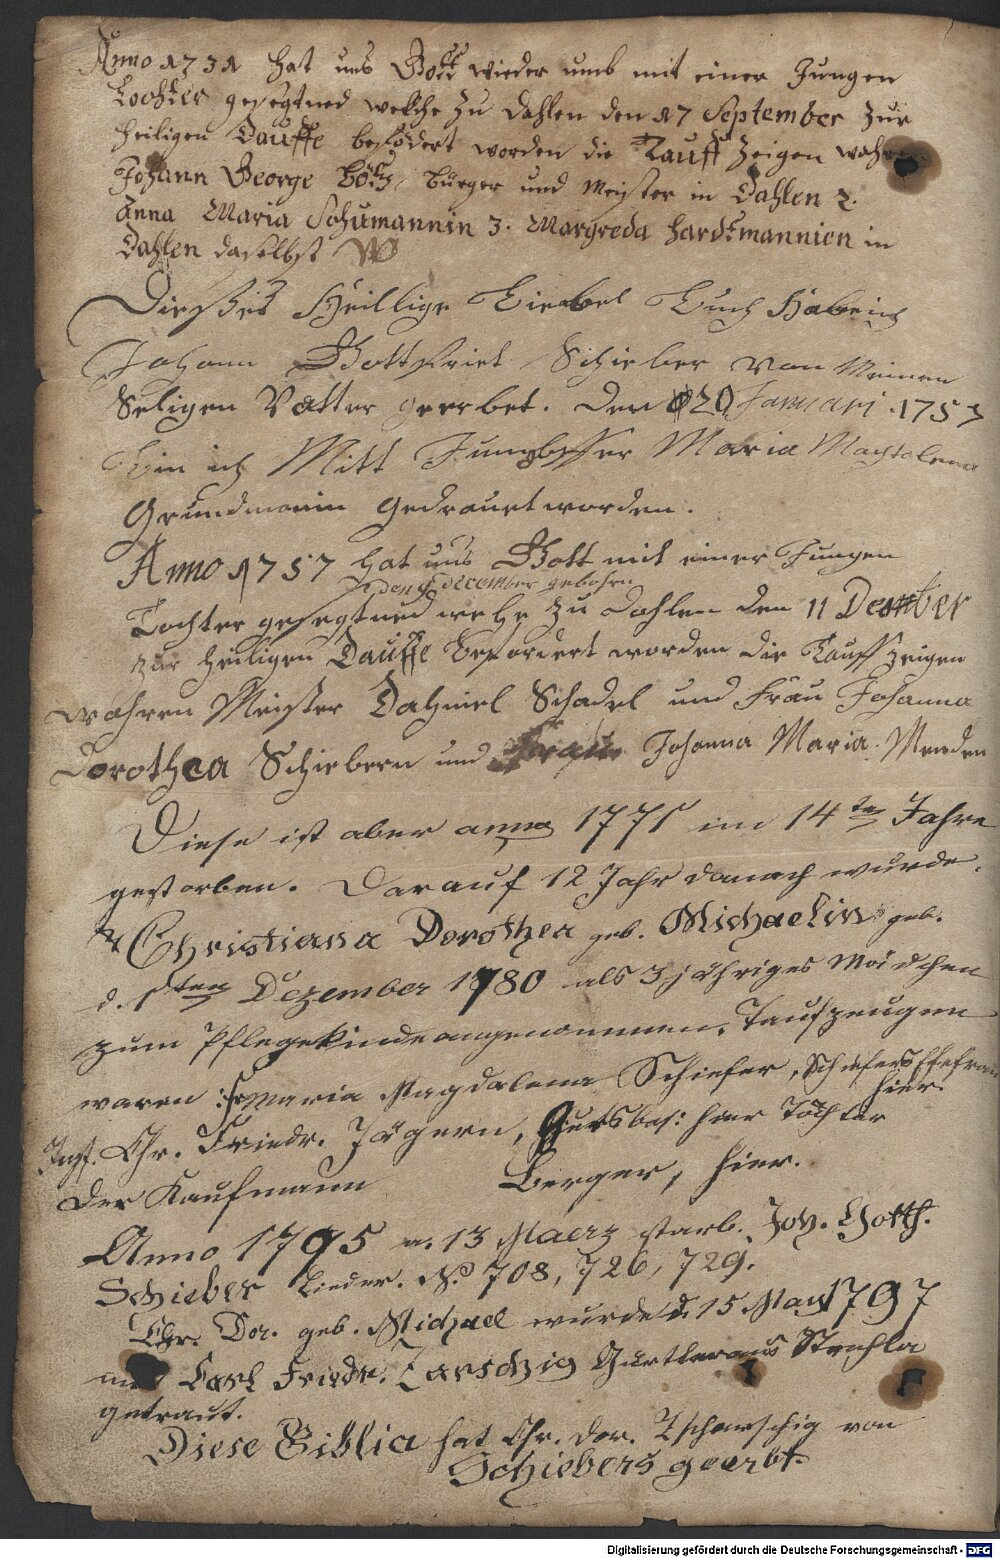 Anno 1731 hat uns Gott wieder umb mit einer Jungen
Tochter gesegtned welche zu Dahlen den 17 September zur
heiligen Dauffe befödert worden die Tauff Zeigen wahren
Johann George Bötz, bürger und Meister in Dahlen 2.
Anna Maria Schumannin 3. Margreda Hardtmannien in
Dahlen daselbst
Dießes Heillige Biebel Buch Habe ich
Johann Gottfriet Schieber von Meinen
Seligen Vatter geerbet. Den 20 Januari 1757
Bin ich Mitt Jungbffer Maria Magtalena
Grundmanin Gedrauet worden.
Anno 1757 hat uns Gott mit einer Jungen
den 9 December gebohren
Tochter gesegtned welche zu Dahlen den 11 Desember
zur heiligen Dauffe Befordert worden die Tauff zeigen
wahren Meister Dahniel Schadel und Frau Johanna
Dorothea Schiebern und Johanna Maria Menden
Diese ist aber anno 1771 im 14ten Jahre
gestorben. Darauf 12 Jahr danach wurde
Christiana Dorothea geb. Michaelin geb.
d. 1ten Dezember 1780 als 3jähriges Mädchen
zum Pflegekinde angenommen. Taufzeugen
waren: Fr Maria Magdalena Schiefer, Schiefers Ehefrau
hier.
Jngf. Chr. Friedr. Jägern, Gutsbes: hier Tochter
Der Kaufmann Berger, hier.
Anno 1795 a. 13 Maerz starb. Joh. Gottf.
Schieber Lieder. No. 708, 726, 729.
Chr. Dor. geb. Michael wurde d. 15 May 1797
mit Carl Friedr. Zarschig Gürtler aus Strehla
getraut.
Diese Biblia hat Chr. Dor. Tscharschig von
Schiebers geerbt.
Digitalisierung gefördert durch die Deutsche Forschungsgemeinschaft - DFG